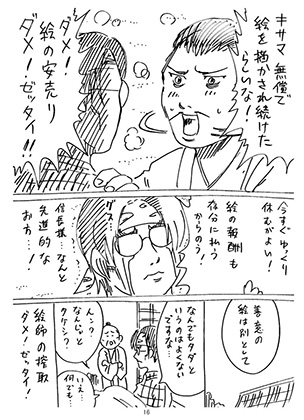 キサマ 無償で
絵を描かされ続けた
らしいな!
ダメ!
絵の安売り
ダメ!ゼッタイ!!
今すぐゆっくり
休むがよい!
絵の報酬も
存分に払う
からのう!
信長様…なんと
先進的な
おカタ!
善意の
絵は別として
なんでもタダと
いうのはよくない
ですな…
ん…?
なんじゃっと
クケン?
いえ…
何も…
絵師の搾取
ダメ!ゼッタイ!
16